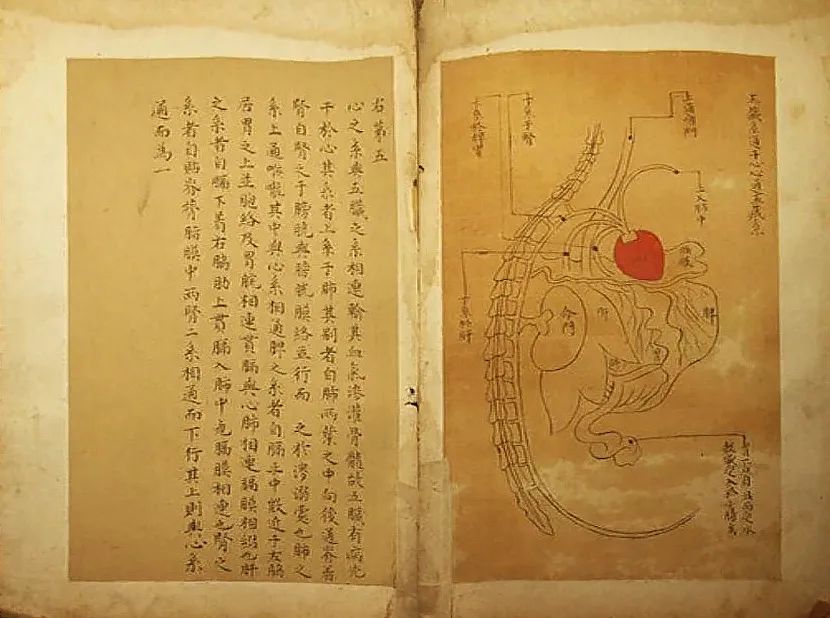 五臟系通于心心通五臟系
上通咽門
上入肺中
下系于腎
下系於脾胃
下系於肝
膈膜
脾
胃
肝
命門
右第五
心之系與五臟之系相連輸其血氣滲灌骨髓故五臟有病先
干於心其系者上系于肺其別者自肺兩葉之中向後通脊者
腎自腎之于膀胱與膀胱膜絡並行而 之於溲溺處也肺之
系上通喉嚨其中與心系相通脾之系者自膈正中微近于左脇
居胃之上並胞絡及胃脘相連貫膈與心肺相連膈膜相綴也肝
之系者自膈下着右脇肋上貫膈入肺中與膈膜相連也腎之
系者自貼脊膂脂膜中兩腎二系相通而下行其上則與心系
通而為一